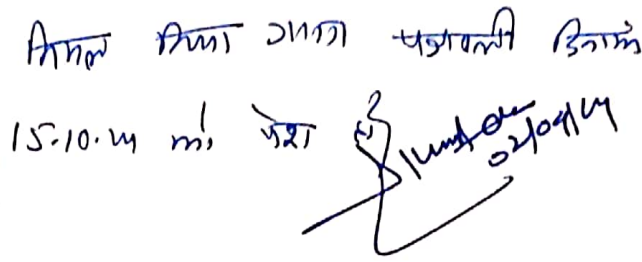 किया जाता पत्रावली दिनांक
15.10.24 को पेश हो
02/09/24